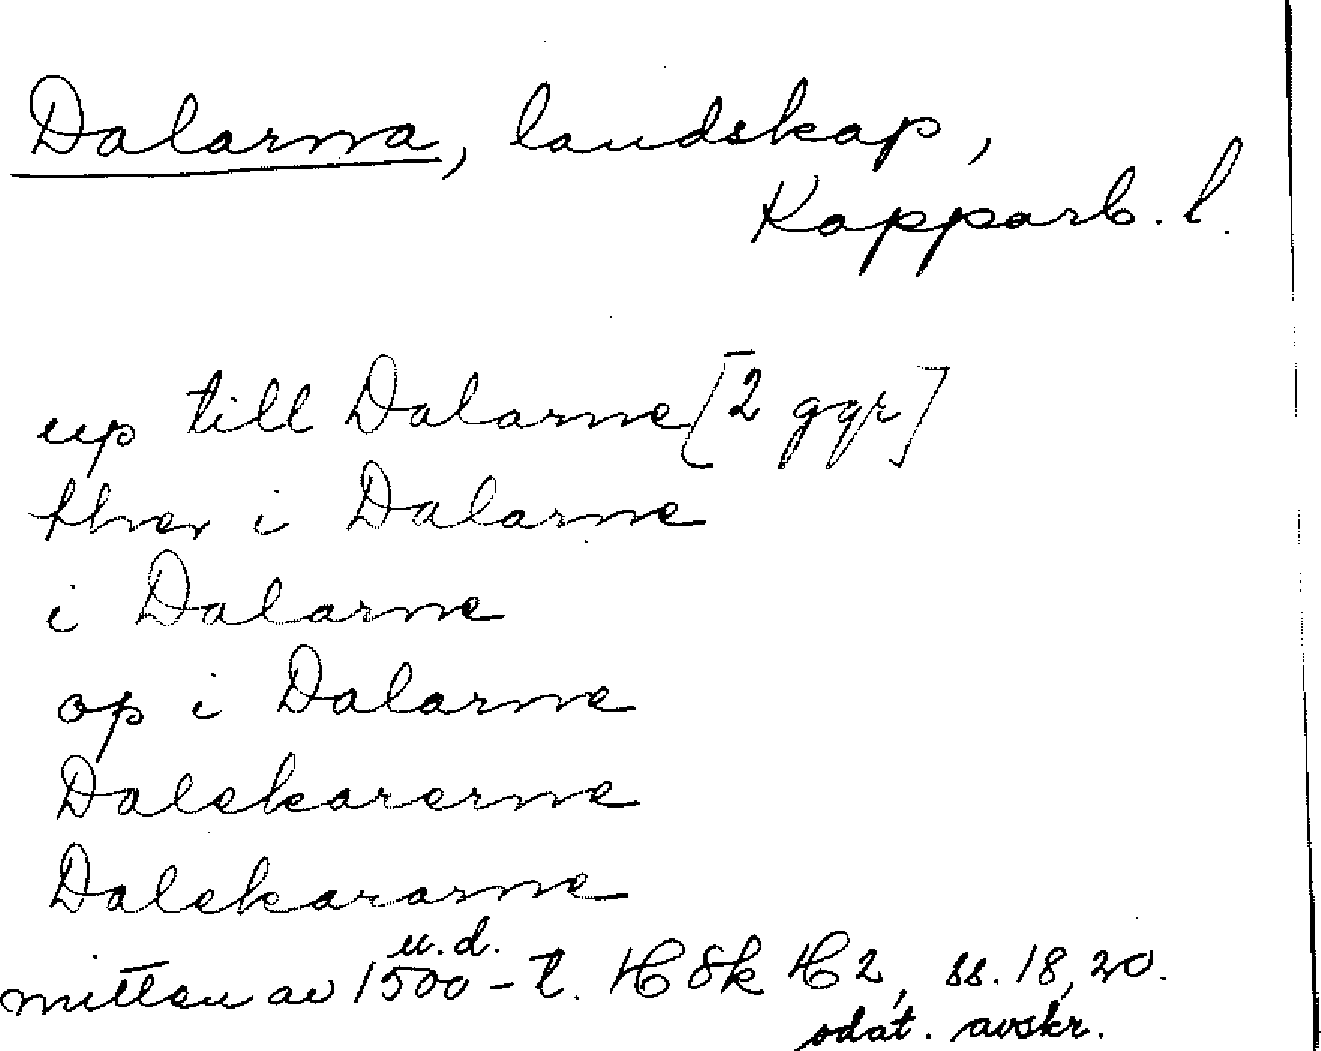 Dalarna, landskap,
Kopparb. l.
up till Dalarne [2 ggr]
i Dalarne
i Dalarne
op i Dalarne
Dalekarerne
Dalekararne
u.d.
mitten av 1500-t. H 2, ss. 18, 20.
odat. avskr.